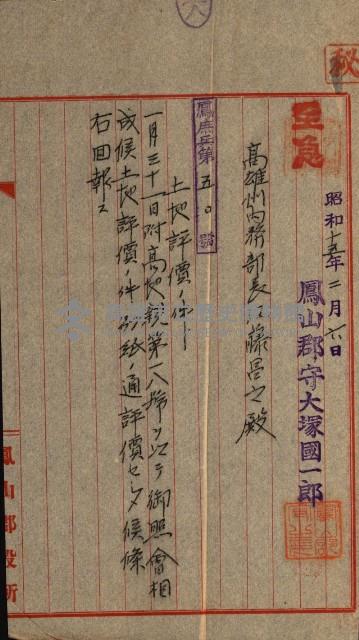 秘
至急
昭和十五年二月六日
鳳山郡守大塚國一郎
高雄州内務部長工藤呂之殿
鳳庶兵第五〇號
土地評價ノ件
一月三十一日附高地親第一八號ヲ以テ御照會相
成候土地評價ノ件別紙ノ通評價セシメ候條
右回報ス
鳳山郡役所